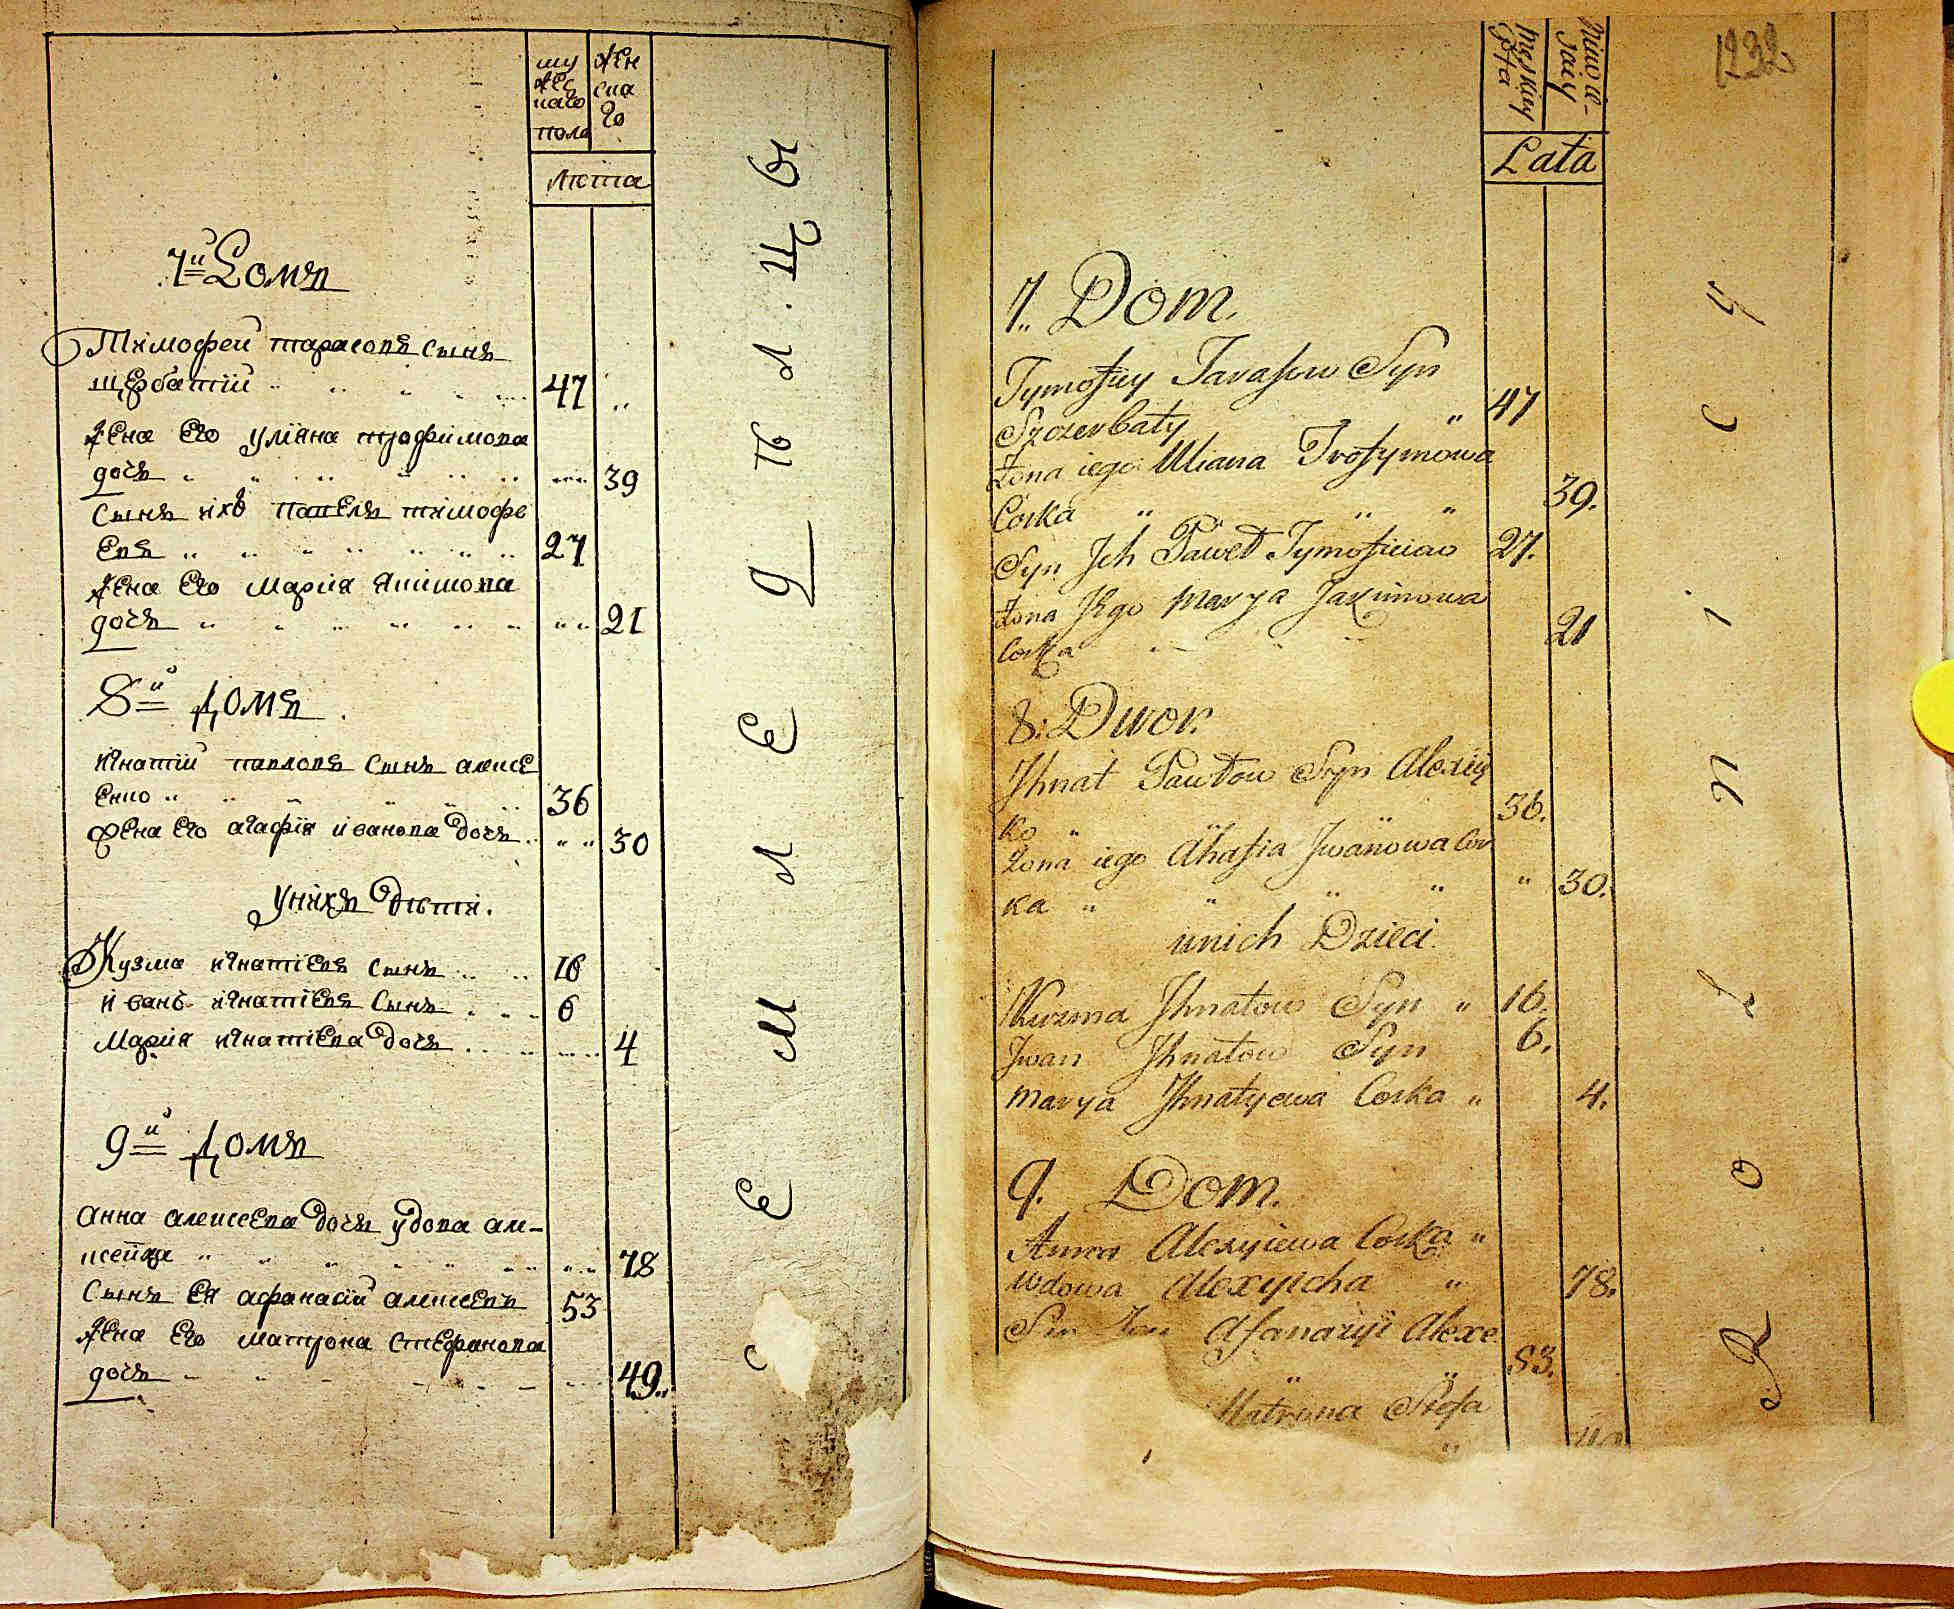 му
жес
каго
пола
жен
ска
го
Лѣта
7й Домъ
Тимофеи тарасовъ сынъ
щербатїи 47
жена Его уліяна трофимова
дочъ 39
Сынъ ихъ павелъ тимофе
Евъ 27
жена Его Марїя якимова
дочъ 21
8й домъ
игнатїи павловъ сынъ алексе
Енко 36
жена Его агафїя ивановадочъ 30
Унихъ дѣти.
Кузма игнатїевъ сынъ 16
иванъ игнатїевъ сынъ 6
Марїя игнатїева дочъ 4
9й домъ
анна алексеева дочъ удова але-
ксеиха 78
Сынъ Ея афанасїи алексеевъ 53
жена Его матрона стефанова
дочъ 49
З Е М Л Е Д Ѣ Л Ц Ы
1232
męskiey
płta
Lata
7. Dom.
Tymofiey Tarasow Syn
Szczerbaty 47
Żona iego Uliana Trofymowa
Corka 39.
Syn Jch Paweł Tymofieiow 27.
Żona Jego Marya Jakimowa
Corka 21
8. Dwor.
Jhnat Pawłow Syn Alexiy
ko 36.
Żona iego Ahafia Jwanowa Cor
ka 30.
unich Dzieci.
Kuzma Jhnatow Syn 16.
Jwan Jhnatow Syn 6.
Marya Jhnatyewa Corka 4.
9. Dom.
Anna Alexyiewa Corka
Wdowa Alexyicha 78.
Afanazyi Alexe
53.
Matrona Stefa
R o l n i c y